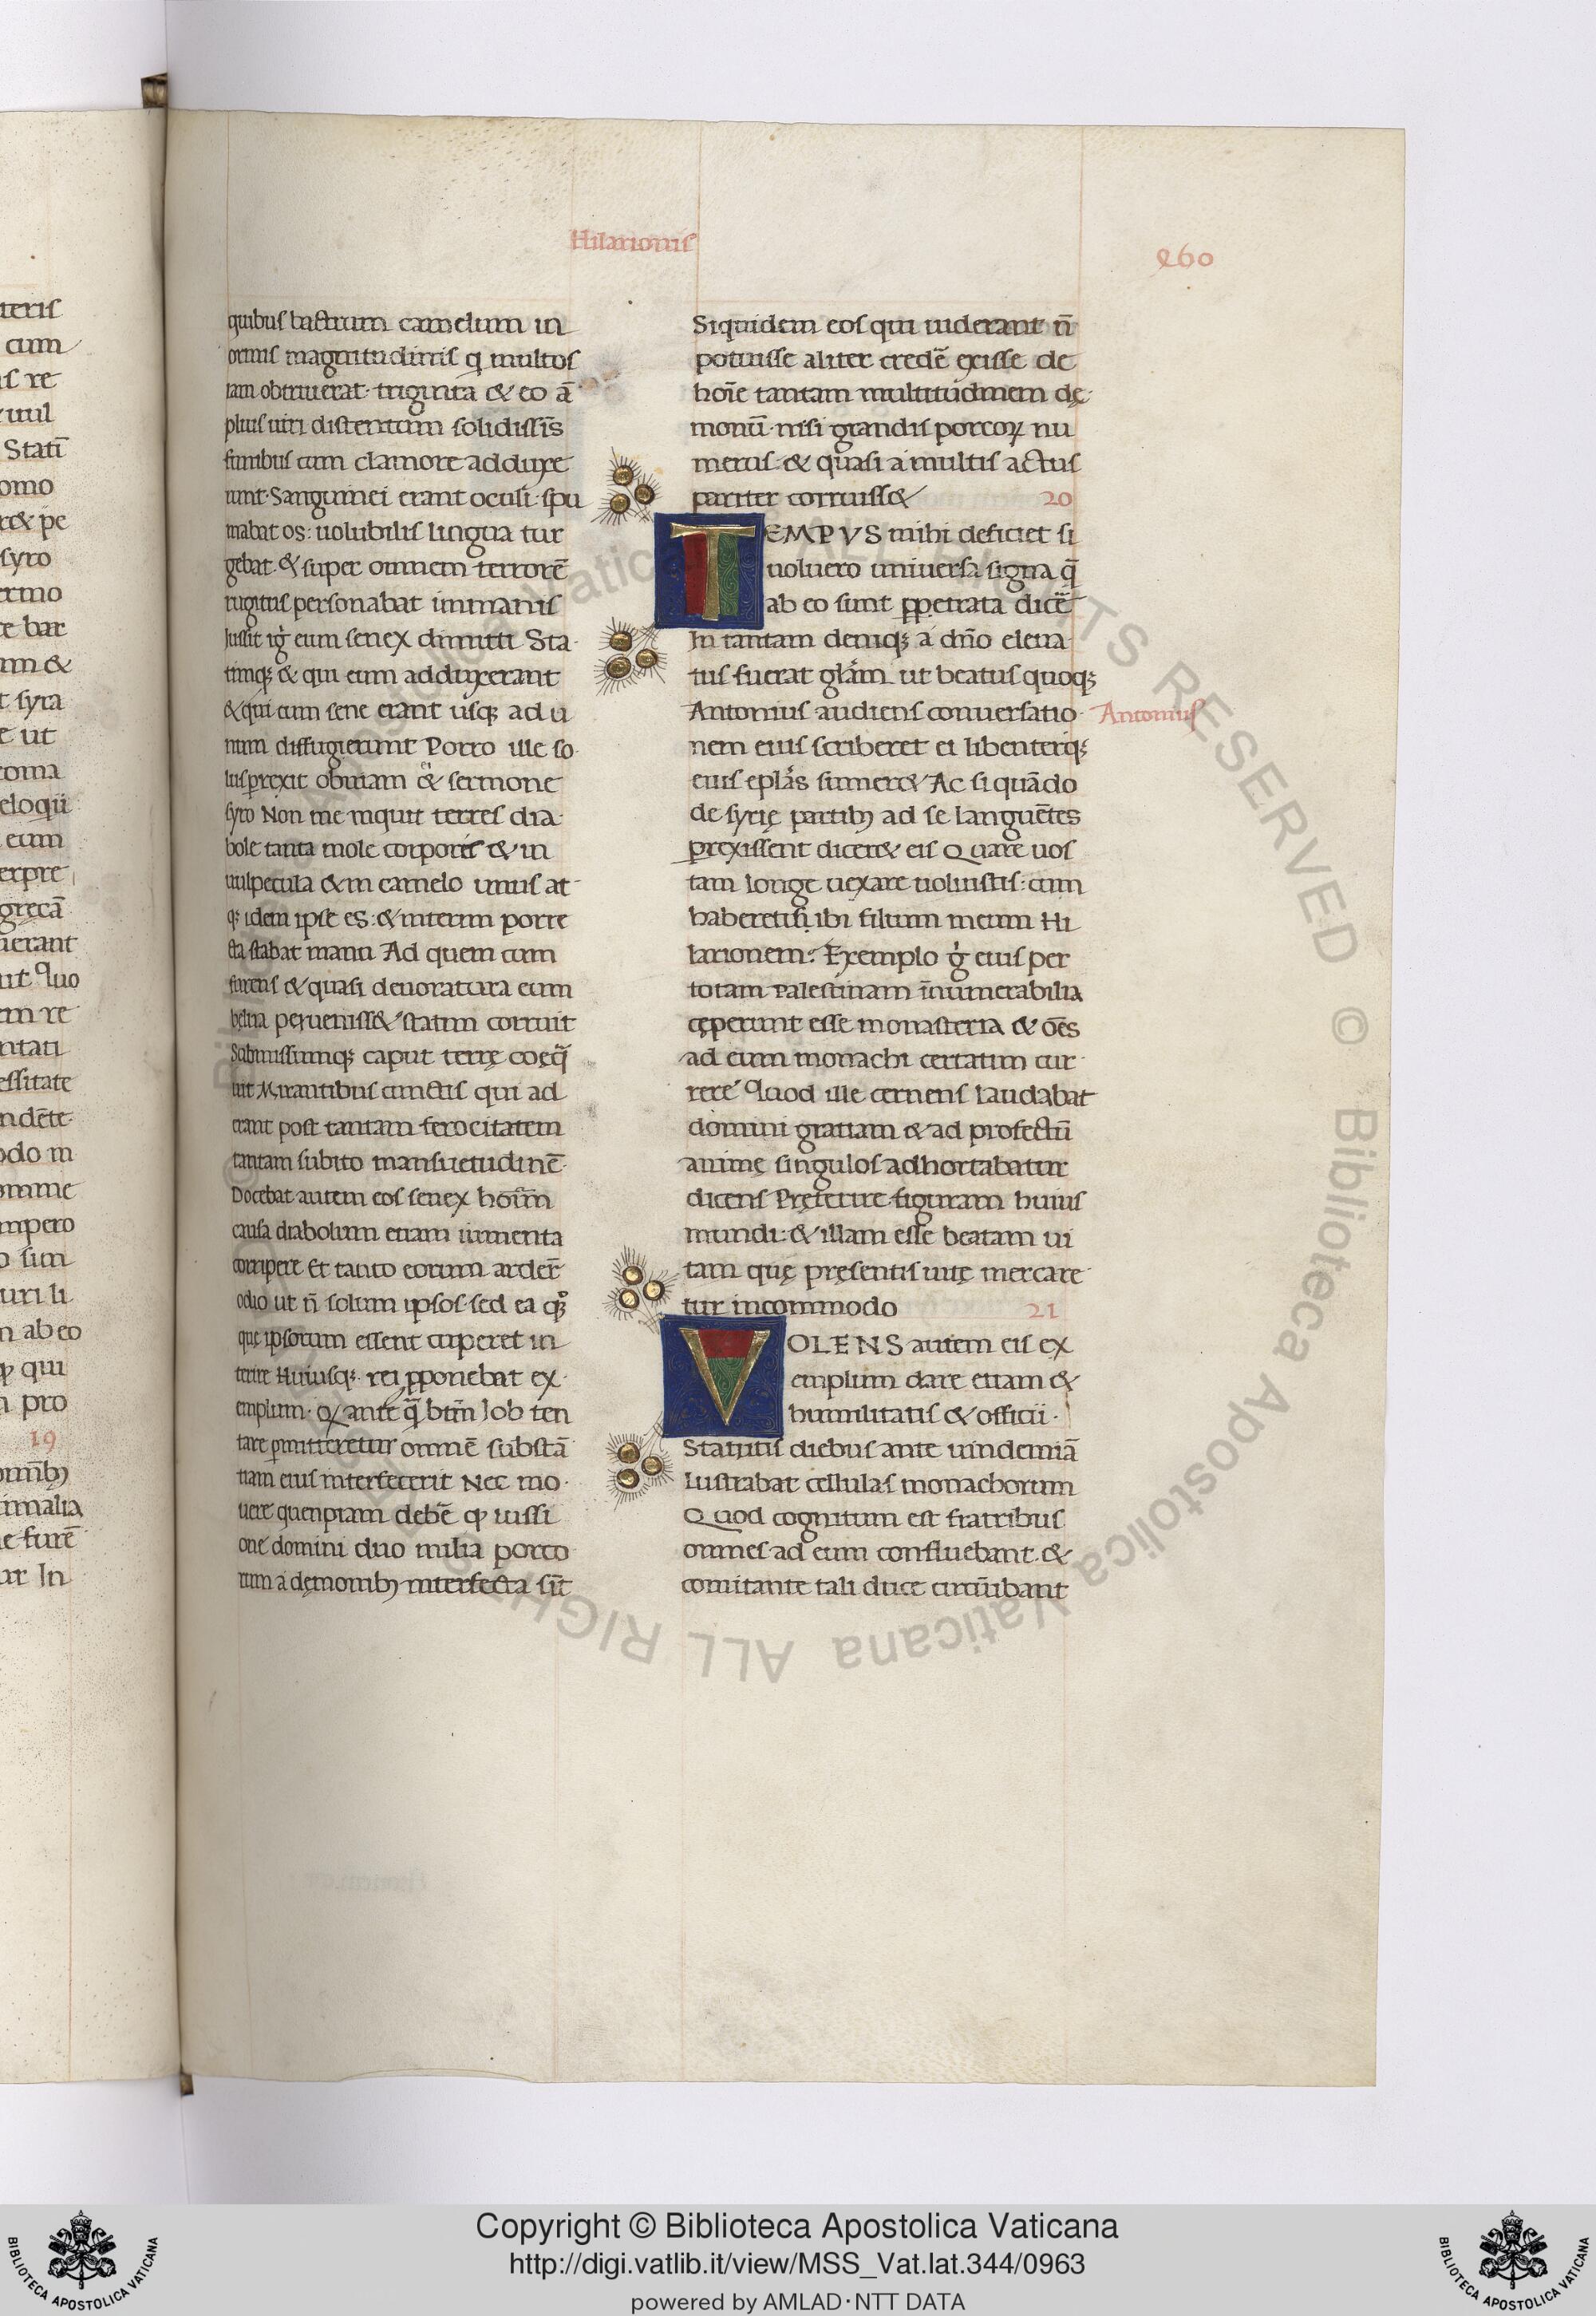 Hilarionis
260
quibus bactrum camelum in
ormis magnitudinis q multos
iam obtriuerat· triginta & eo ā
plius uiri distentum solidissīs
funibus cum clamore adduxe
runt· Sanguinei erant oculi· spu
mabat os: uolubilis lingua tur
gebat· & super omnem terrorē
rugitus personabat immanis
Iussit igr̄ eum senex dimitti Sta·
timq; & qui eum adduxerant
& qui cum sene erant usq; ad u
num diffugierunt Porro ille so·
lus prexit obuiam & sermone
syro Non me inquit terres dia·
bole tanta mole corporis & in
uulpecula & in camelo unus at·
q; idem ipse es: & interim porre
cta stabat manu Ad quem cum
furens & quasi deuoratura eum
belua peruenisset statim corruit
Submissumq; caput terrę coęq̄
uit Mirantibus cunctis qui ad
erant post tantam ferocitatem
tantam subito mansuetudinē·
Docebat autem eos senex hoīm
causa diabolum etiam iumenta
corripere Et tanto eorum arder̄
odio ut n̄ solum ipsos· sed ea q;
que ipsorum essent cuperet in
terire Huiusq; rei ꝓponebat ex·
emplum· Q ante q̄ btm̄ Iob ten
tare pmitteretur omnē substā
tiam eius interfecerit Nec mo·
uere quenpiam debē ꝙ iussi
one domini duo milia porco
rum a dęmonib; interfecta sūt
Siquidem eos qui uiderant n̄
potuisse aliter credē exisse de
hoīe tantam multitudinem dę·
monū· nisi grandis porcoꝝ nu
merus· & quasi a multis actus
pariter corruisset
20
TEMPVS mihi deficiet si
uoluero uniuersa signa q̄
ab eo sunt ꝑpetrata dicē
In tantam deniq; a dn̄o eleua
tus fuerat glām· ut beatus quoq;
Antonius audiens conuersatio·
Antonius
nem eius scriberet ei libenterq;
eius eplās sumeret Ac si quādo
de syrię partib; ad se languētes
prexissent diceret eis Quare uos
tam longe uexare uoluistis: cum
haberetis ibi filium meum Hi
larionem? Exemplo ġ eius per
totam Palestinam īnumerabilia
cęperunt esse monasteria & oēs
ad eum monachi certatim cur·
rere Quod ille cernens laudabat
domini gratiam & ad profectū
animę singulos adhortabatur
dicens Pręterire figuram huius
mundi: & illam esse beatam ui
tam quę pręsentis uitę mercare·
tur incommodo
21
VOLENS autem eis ex
emplum dare etiam &
humilitatis & officii·
Statutis diebus ante uindemiā
Lustrabat cellulas monachorum
Quod cognitum est fratribus
omnes ad eum confluebant· &
comitante tali duce circūibant
iteris
cum
re
Statī
omo
syro
ermo
bar
syra
ut
coma
eloqui
eum
erpre
gręcā
uerant
quo
re
ntati
essitate
ndēte
odo in
omine
mpero
sim
uri li
ab eo
qui
pro
19
omīb;
nimalia
furē
ur In
Copyright © Biblioteca Apostolica Vaticana
http://digi.vatlib.it/view/MSS_Vat.lat.344/0963
powered by AMLAD·NTT DATA
BIBLIOTECA APOSTOLICA VATICANA
BIBLIOTECA APOSTOLICA VATICANA
© Biblioteca Apostolica Vaticana ALL RIGHTS RESERVED © Biblioteca Apostolica Vaticana ALL RIGHTS RESERVED